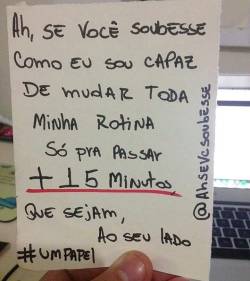 Ah, SE VOCÊ SOUBESSE
COMO EU SOU CAPAZ
DE MUDAR TODA
MINHA ROTINA
SÓ PRA PASSAR
+ 15 MINUTOS
QUE SEJAM,
AO SEU LADO
#UMPAPEl
@AhSEVCSOUBESSE